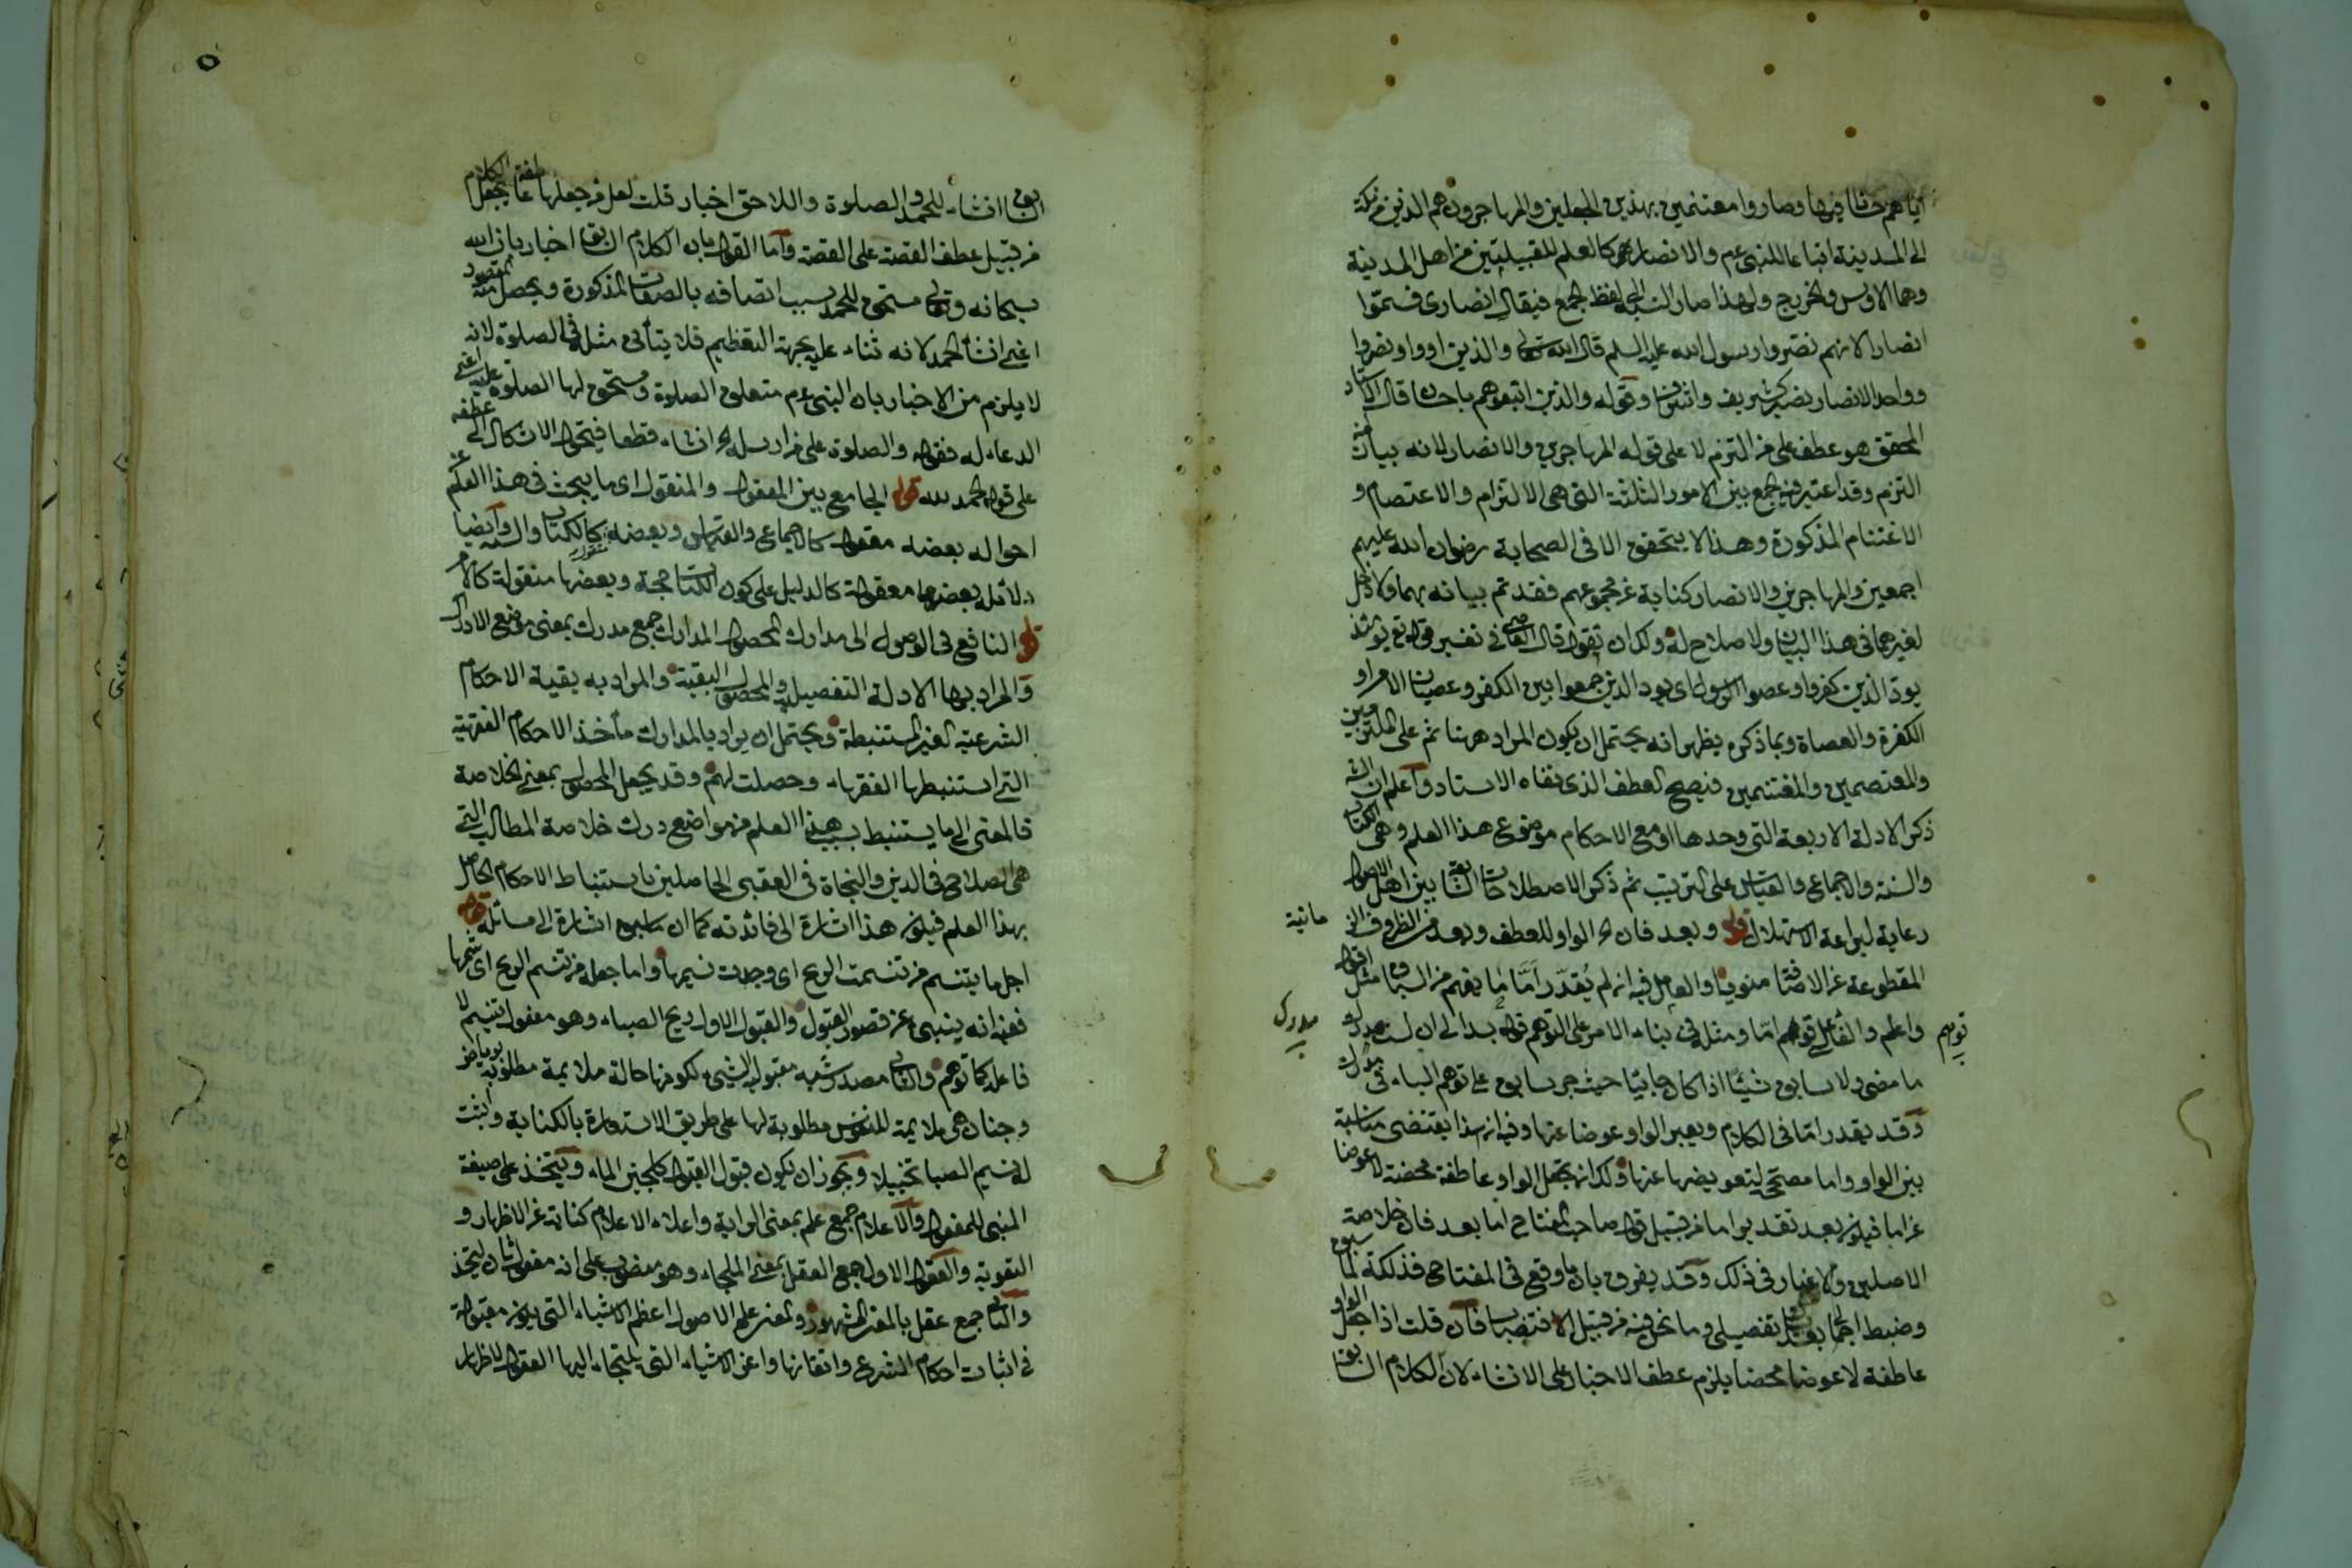 اياهم حثا فيها وصاروا مغتنمين بهذين الجعلين والمهاجرون هم الذين من مكة
الى المدينة اتباعا للنبى عم والانصار هو كالعلم للقبيلتين من اهل المدينة
وهما الاوس والخزرج ولهذا صار النسبة الى لفظ الجمع فيقال انصارى فسموا
انصارا لانهم نصروا رسول الله عليه السلم قال الله تعالى والذين اووا ونصروا
وواحد الانصار نصير كشريف واشراف وقوله والذين اتبعوهم باحسان قال الاستاد
المحقق هو عطف على من التزم لا على قوله المهاجرين والانصار لانه بيان من
التزم وقد اعتبر فيه الجمع بين الامور الثلثة التى هى الالتزام والاعتصام و
الاغتنام المذكورة وهذا لا يتحقق الا فى الصحابة رضوان الله عليهم
اجمعين والمهاجرين والانصار كناية عن مجموعهم فقد تم بيانه بهما ولا دخل
لغيرهما فى هذا البيان ولا صلاح له ولك ان تقول قال القاضى فى تفسير قوله تع يومئذ
يود الذين كفروا وعصوا الرسول اى يود الذين جمعوا بين الكفر وعصيان الامر او
الكفرة والعصاة وبما ذكره يظهر انه يحتمل ان يكون المراد ههنا ثم على الملتزمين
والمعتصمين والمغتنمين فيصح العطف الذى نفاه الاستاد واعلم ان الش
ذكر الادلة الاربعة التى وحدها او مع الاحكام موضوع هذا العلم وهى الكتاب
والسنة والاجماع والقياس على الترتيب ثم ذكر الاصطلاحات الشايعة بين اهل الاصول
رعاية لبراعة الاستهلال قوله وبعد فان الخ الواو للعطف وبعد من الظروف الز مانية
المقطوعة عن الاضافة منويا والعامل فيه ان لم يقدر اما ما يفهم من السياق مثل اقول
واعلم والفاء على توهم اما ومثله فى بناء الامر على التوهم قوله بدا لى ان لست مدرك
ما مضى ولا سابق شيئا اذا كان جائيا حيث جر سابق على توهم الباء فى مدرك
وقد يقدر اما فى الكلام ويعبر الواو عوضا عنها وفيه ان هذا يقتضى مناسبة
بين الواو واما مصحح لتعويضها عنها ولك ان تجعل الواو عاطفة محضة لا عوضا
عن اما فيكون بعد تقديرا اما من قبيل قول صاحب المفتاح اما بعد فان خلاصة
الاصلين ولا غبار فى ذلك وقد يفرق بان ما وقع فى المفتاح فذلكة لما سبق
وضبط اجمالى بعد تفصيلى وما نحن فيه من قبيل الاقتضاب فان قلت اذا جعل الواو
عاطفة لا عوضا محضا يلزم عطف الاخبار على الانشاء لان الكلام السابق
توهم
مدرك
السابق انشاء للحمد والصلوة واللاحق اخبار قلت لعل من جعلها عاطفة يجعل الكلام
من قبيل عطف القصة على القصة واما القول بان الكلام السابق اخبار بان الله
سبحانه وتعالى مستحق للحمد بسبب اتصافه بالصفات المذكورة ويحصل منه المقصود
اعنى انشاء الحمد لانه ثناء عليه بجهة التعظيم فلا يتأتى مثله فى الصلوة لانه
لا يلزم من الاخبار بان النبى عم متعلق الصلوة ومستحق لها الصلوة عليه اعنى
الدعاء له فقوله والصلوة على من ارسله الخ انشاء قطعا فيتحول الاشكال الى عطفه
على قوله الحمد لله قوله الجامع بين المعقول والمنقول اى ما يبحث فى هذا العلم عن
احواله بعضه معقول كالاجماع والقياس وبعضه منقول كالكتاب والسنة وايضا
دلائله بعضها معقولة كالدليل على كون الكتاب حجة وبعضها منقولة كالامر
قوله النافع فى الوصول الى مدارك المحصول المدارك جمع مدرك بمعنى موضع الادراك
والمراد بها الادلة التفصيلية والمحصول البقية والمراد به بقية الاحكام
الشرعية الغير المستنبطة ويحتمل ان يراد بالمدارك مأخذ الاحكام الفقهية
التى استنبطها الفقهاء وحصلت لهم وقد يجعل المحصول بمعنى الخلاصة
فالمعنى الى ما يستنبط بسبب هذا العلم من مواضع درك خلاصة المطالب التى
هى الصلاح فى الدين والنجاة فى العقبى الحاصلين باستنباط الاحكام الحاصل
بهذا العلم فيكون هذا اشارة الى فائدته كما ان ما سبق اشارة الى مسائله قوله
اجل ما يتنسم من تنسمت الريح اى وجدت نسيمها واما جعله من تنسم الريح اى شمها
ففيه انه ينبئ عن قصور القبول والقبول الاول ريح الصباء وهو مفعول تنسم لا
فاعله كما توهم والثانى مصدر شبه مقبولية الشئ لكونها حالة ملايمة مطلوبة برياض
وجنان هى ملايمة للنفوس مطلوبة لها على طريق الاستعارة بالكناية واثبت
له نسيم الصبا تخييلا ويجوز ان يكون قبول القبول كلجين الماء ويتخذ على صيغة
المبنى للمفعول والاعلام جمع علم بمعنى الراية واعلاء الاعلام كناية عن الاظهار و
التقوية والعقول الاول جمع العقل بمعنى الملجاء وهو منصوب على انه مفعول ثان ليتخذ
والثانى جمع عقل بالمعنى المشهور والمعنى علم الاصول اعظم الاشياء التى يكون مقبولة
فى اثبات احكام الشرع واتقانها واعز الاشياء التى يلتجاء اليها العقول لاظهار